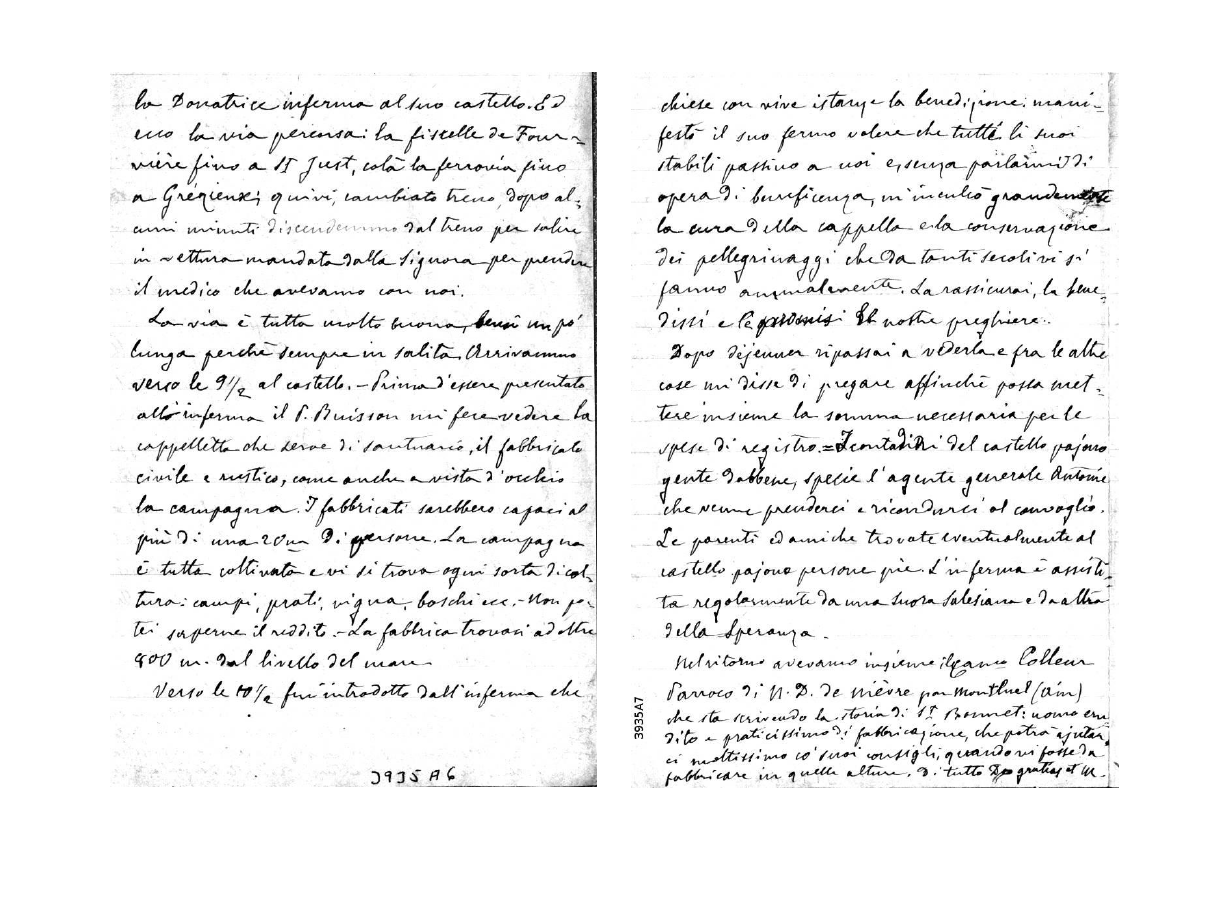 la Donatrice inferma al suo castello. Ed
ecco la via percorsa: la ficelle de Four-
vière fino a St Just, colà la ferrovia fino
a Grézieux; quivi, cambiato treno, dopo al-
cuni minuti discendemmo dal treno per salire
in vettura mandata dalla Signora per prendere
il medico che avevamo con noi.
La via è tutta molto buona, bensì un pò
lunga perchè sempre in salita. Arrivammo
verso le 9 1/2 al castello. - Prima d'essere presentato
all'inferma il P. Buisson mi fece vedere la
cappelletta che serve di santuario, il fabbricato
civile e rustico, come anche a vista d'occhio
la campagna. I fabbricati sarebbero capaci al
più di una 20na di persone. La campagna
è tutta coltivata e vi si trova ogni sorta di col-
tura: campi, prati, vigna, boschi ecc. - Non po-
tei saperne il reddito. - La fabbrica trovasi ad oltre
800 m. dal livello del mare.
Verso le 10 1/2 fui introdotto dall'inferma che
3935 A6
chiese con vive istanze la benedizione: mani-
festò il suo fermo volere che tutti li suoi
stabili passino a noi e, senza parlarmi di
opera di beneficenza, m'inculcò grandemente
la cura della cappella e la conservazione
dei pellegrinaggi che da tanti secoli vi si
fanno annualmente. La rassicurai, la bene-
dissi e le promisi nostre preghiere.
Dopo déjeuner ripassai a vederla e fra le altre
cose mi disse di pregare affinchè possa met-
tere insieme la somma necessaria per le
spese di registro. = I contadini del castello pajono
gente dabbene, specie l'agente generale Antoine
che venne prenderci e ricondurci al convoglio.
Le parenti ed amiche trovate eventualmente al
castello pajono persone pie. L'inferma è assisti-
ta regolarmente da una Suora Salesiana e da altra
della Speranza.
Nel ritorno avevamo insieme il Colleur
Parroco di N. D. de Nièvre par Montluel (Ain)
che sta scrivendo la storia di St Bonnet: uomo eru
dito e praticissimo di fabbricazione, che potrà ajutar
ci moltissimo co' suoi consigli, quando vi fosse da
fabbricare in quelle alture. Di tutto Deo gratias et M.
3935A7